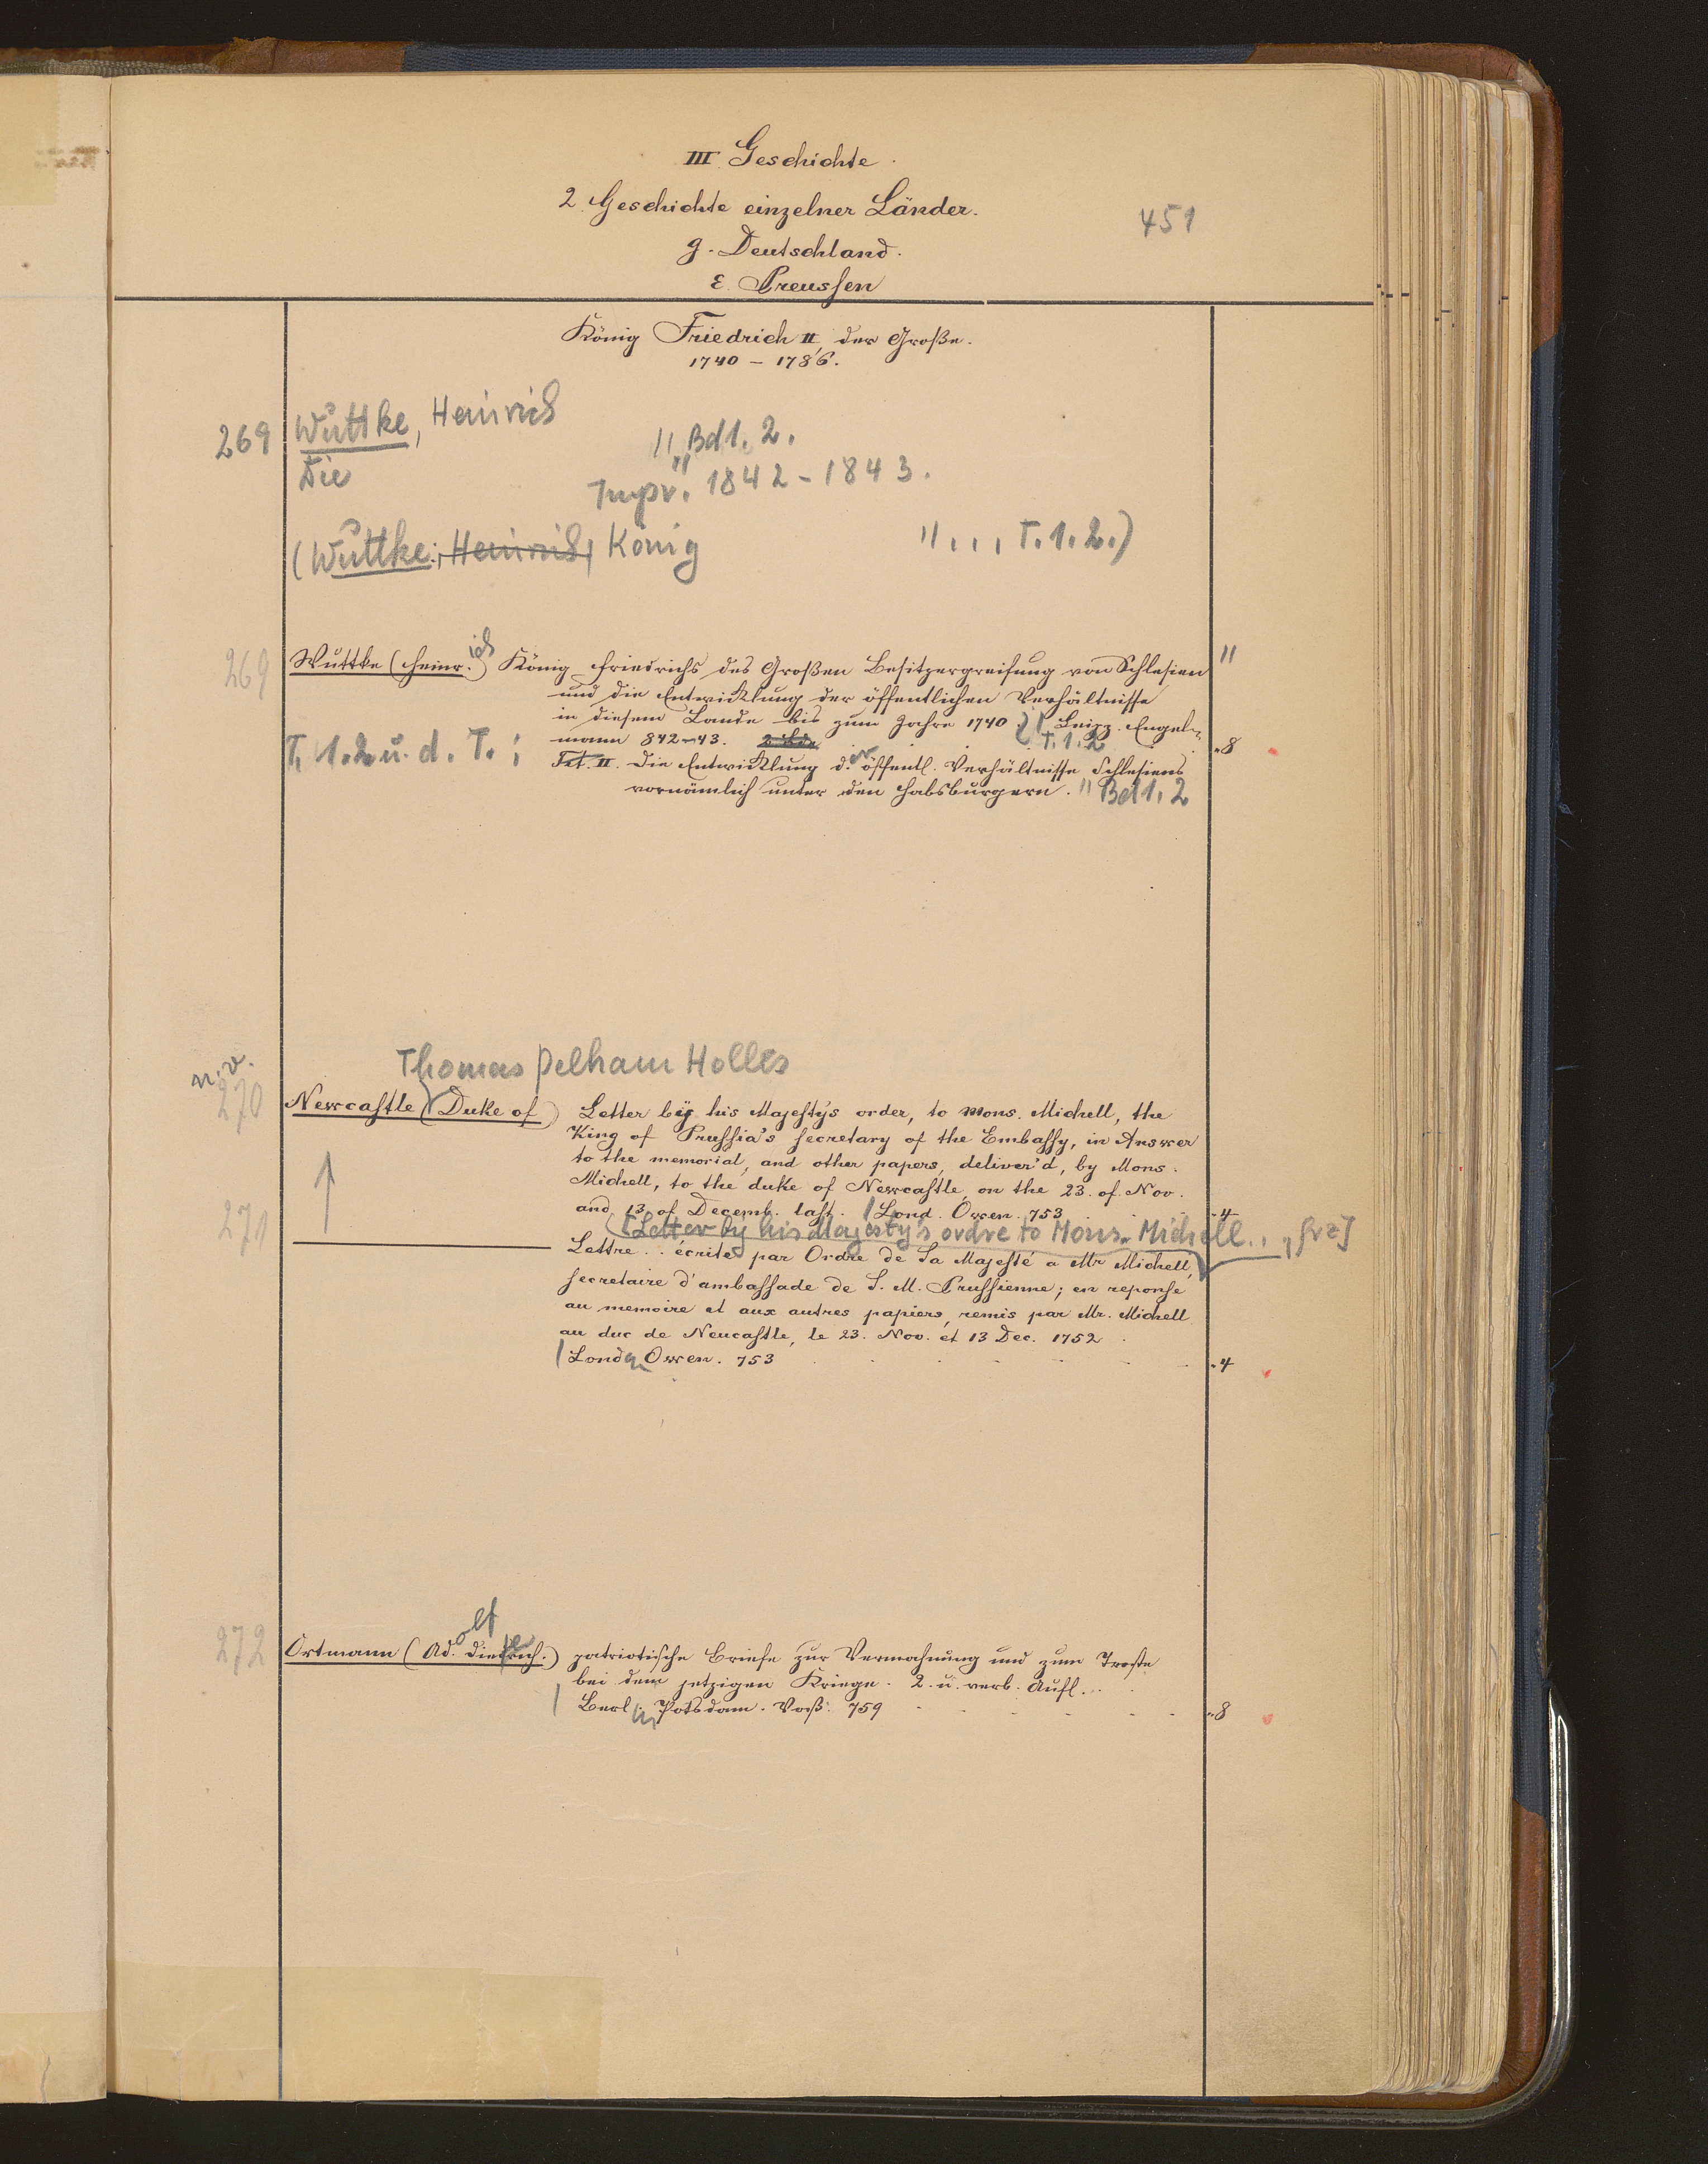 III Geschichte.
2. Geschichte einzelner Länder.
451
g. Deutschland.
ε. Preussen
König Friedrich II, der Große.
1740 – 1786.
269 Wuttke, Heinrich
Die " Bd 1. 2.
Impr. 1842-1843.
(Wuttke, Heinrich, König " . . , T. 1. 2.)
269 Wuttke (Heinr.ich) König Friedrichs des Großen Besitzergreifung von Schlesien "
und die Entwicklung der öffentlichen Verhältnisse
in diesem Lande bis zum Jahre 1740. | Leipz. Engel-
mann 842-43. T. 1. 2 -8
T. 1. 2 u. d. T. :
Tit. II. Die Entwicklung d.er öffentl. Verhältnisse Schlesiens
vornämlich unter den Habsburgern. " Bd 1, 2
n. v.
Thomas Pelham Holles
270 Newcastle (Duke of) Letter by his Majesty's order, to Mons. Michell, the
King of Prussia's secretary of the Embassy, in Answer
to the memorial, and other papers, deliver'd, by Mons.
Michell, to the duke of Newcastle, on the 23. of. Nov.
and 13 of Decemb. last. | Lond. Owen. 753 -4
271 [Letter by his Majesty's ordre to Mons. Michell . . , frz]
Lettre . . écrite par Ordre de Sa Majesté a Mr Michell,
secretaire d'ambassade de S. M. Prussienne; en reponse
au memoire et aux autres papiers, remis par Mr. Michell
au duc de Neucastle, le 23. Nov. et 13 Dec. 1752
| Lond. Owen. 753 -4
272 Ortmann (Ad.olf Dietrich.) patriotische Briefe zur Vermahnung und zum Troste
bei dem jetzigen Kriege. 2. u. verb. Aufl.
| Berl. u. Potsdam. Voß. 759 -8